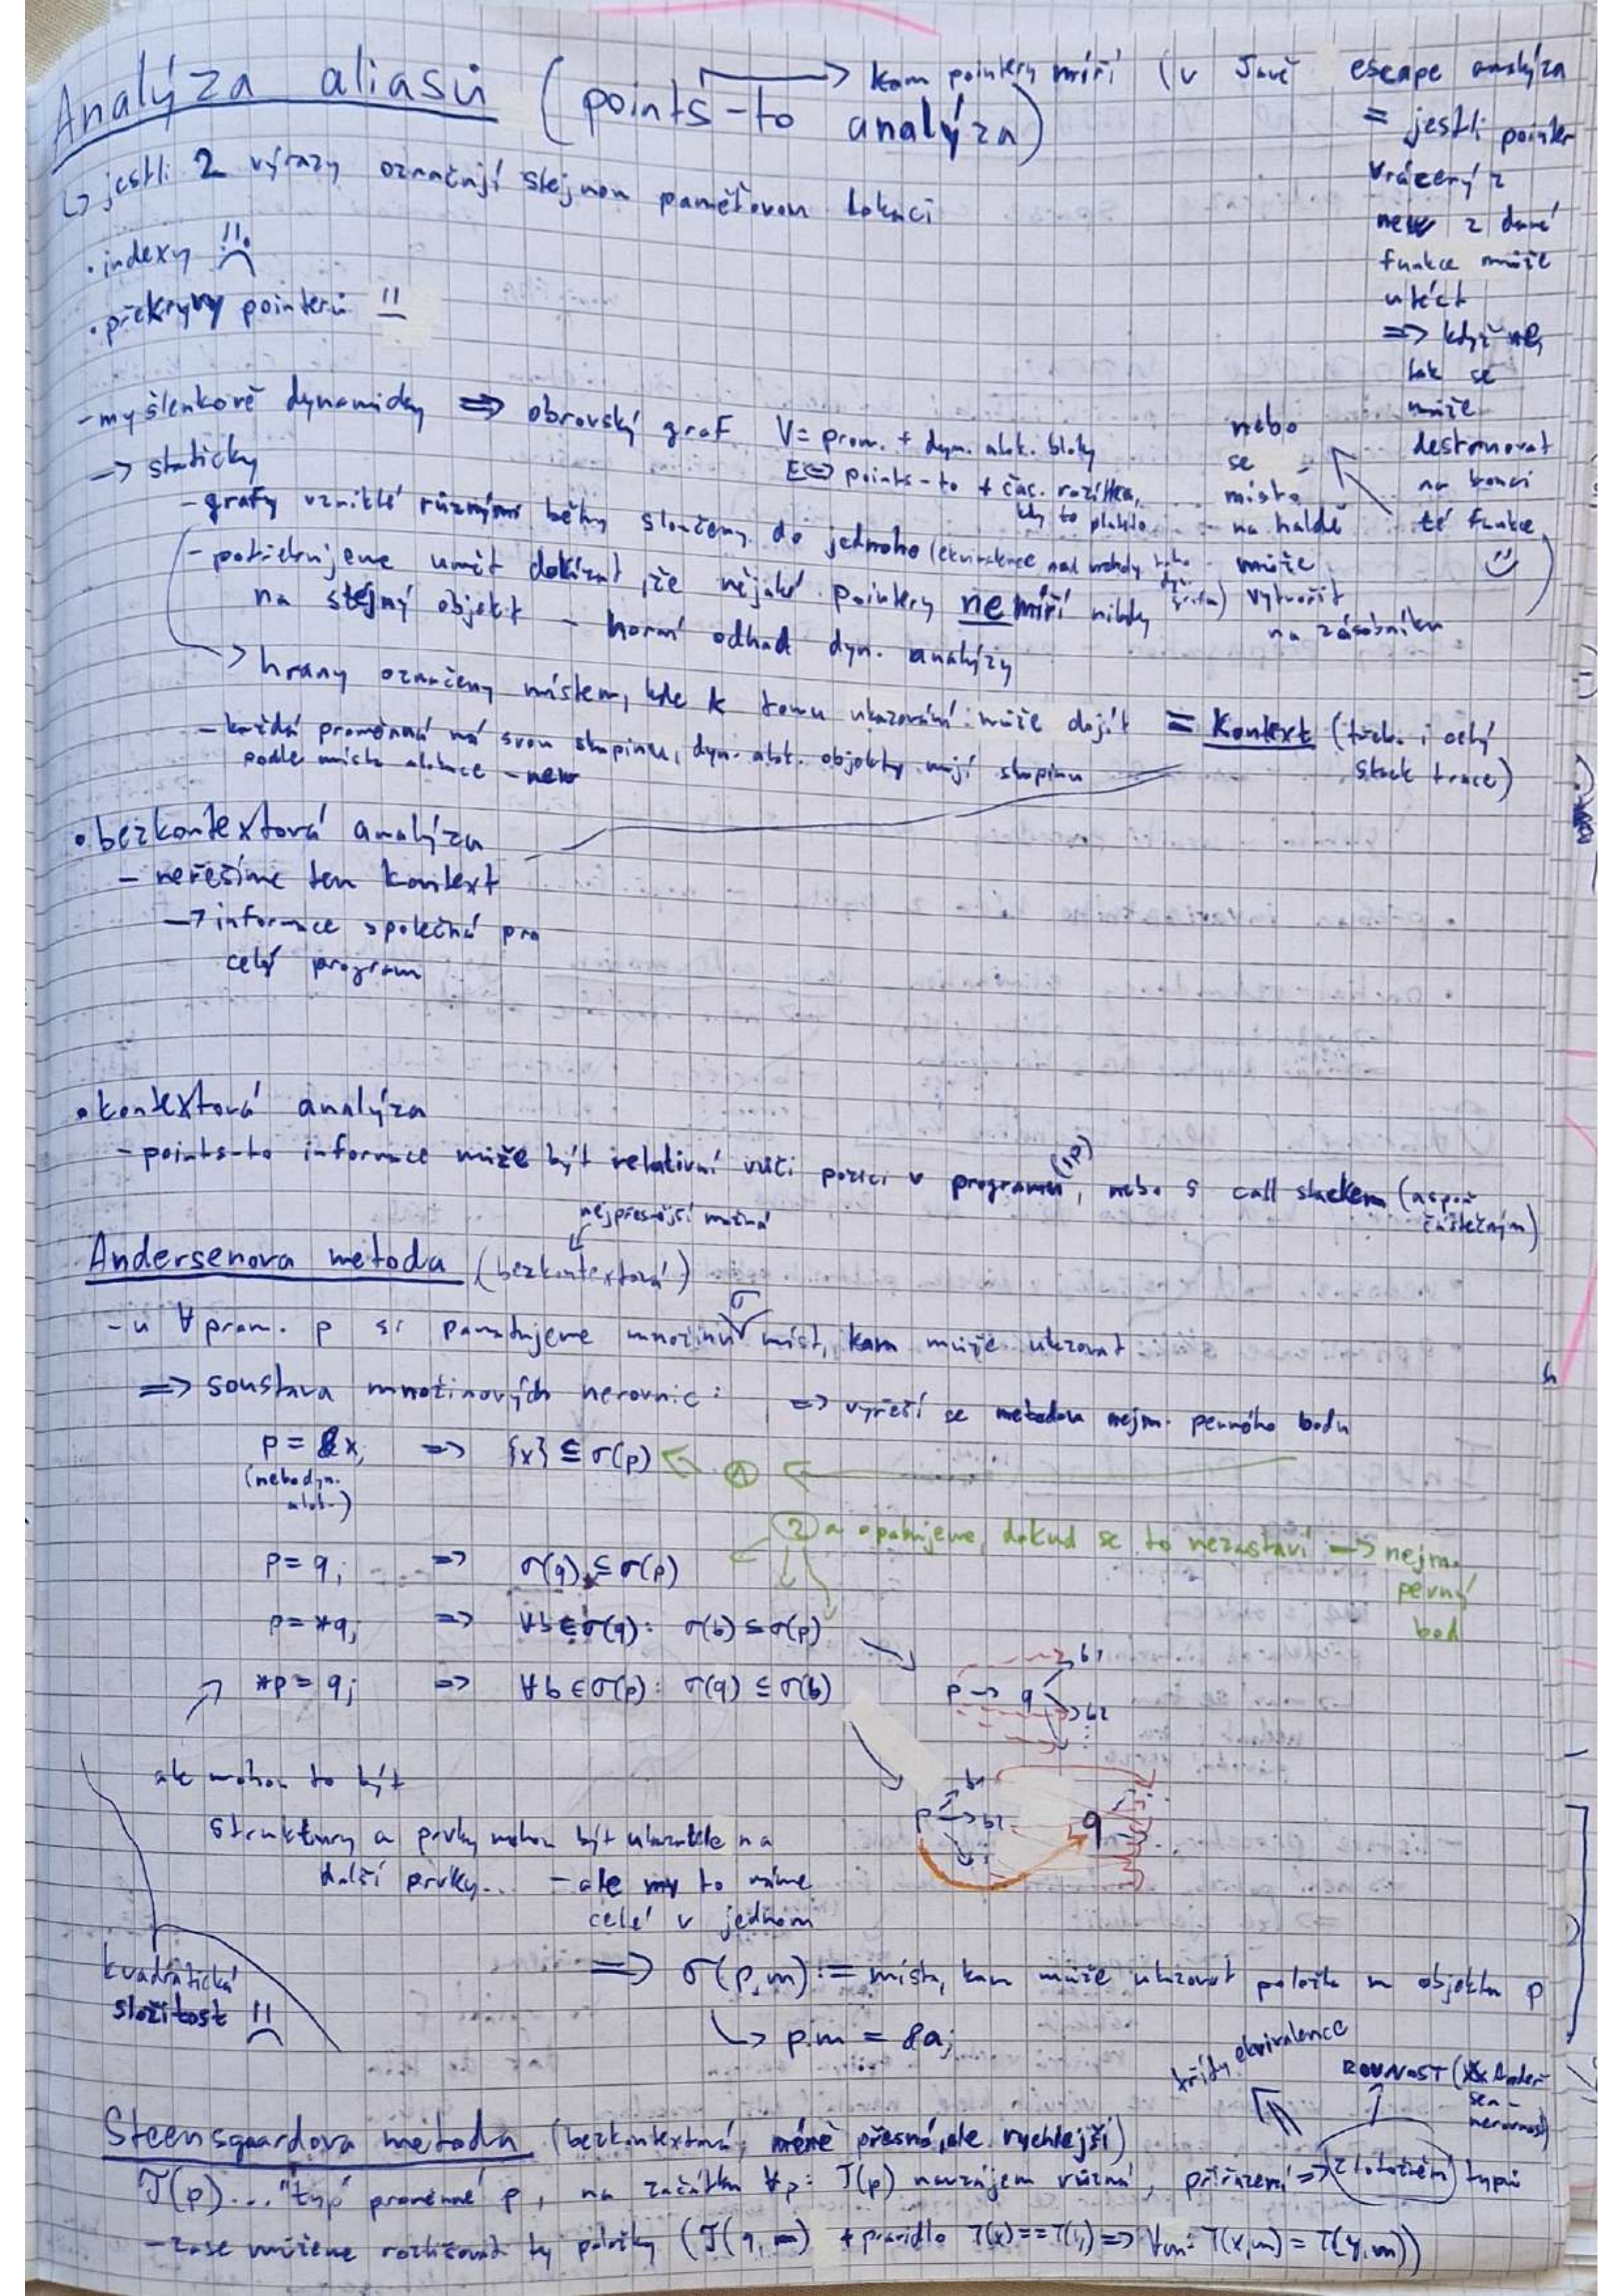 Analýza aliasů (points-to analýza)
→ kam pointery míří (v Javě escape analýza
= jestli pointer
vrácený z
new z dané
funkce může
utéct
=> když ne,
tak se
může
destruovat
na konci
té funkce
nebo
se
místo
na haldě
může
vytvořit
na zásobníku
↳ jestli 2 výrazy označují stejnou paměťovou lokaci
• indexy !!
• překryvy pointerů !!
- myšlenkově dynamicky => obrovský graf V = prom. + dyn. alok. bloky
E <=> points-to + čas. razítka, kdy to platilo
-> staticky
- grafy vzniklé různými běhy sloučeny do jednoho (ekvivalence nad vrcholy toho dyn. grafu)
- potřebujeme umět dokázat, že nějaké pointery nemíří nikdy
na stejný objekt - horní odhad dyn. analýzy
-> hrany označeny místem, kde k tomu ukazování může dojít = Kontext (třeba i celý
stack trace)
- každá proměnná má svou skupinu, dyn. alok. objekty mají skupinu
podle místa alokace - new
• bezkontextová analýza
- neřešíme ten kontext
-> informace společná pro
celý program
• kontextová analýza
- points-to informace může být relativní vůči pozici v programu (ip), nebo s call stackem (aspoň
částečným)
nejpřesnější možná
Andersenova metoda (bezkontextová)
- u ∀ prom. p si pamatujeme množinu σ míst, kam může ukazovat
=> soustava množinových nerovnic: => vyřeší se metodou nejm. pevného bodu
p = &x; => {x} ⊆ σ(p) ① 
(nebo dyn.
alok.)
② a opakujeme, dokud se to nezastaví -> nejm.
pevný
bod
p = q; => σ(q) ⊆ σ(p)
p = *q; => ∀b ∈ σ(q): σ(b) ⊆ σ(p)
*p = q; => ∀b ∈ σ(p): σ(q) ⊆ σ(b)
p -> q b1
b2
p b1
b2 q
ale mohou to být
struktury a prvky mohou být ukazatele na
další prvky... - ale my to máme
celé v jednom
=> σ(p,m) := místa, kam může ukazovat položka m objektu p
↳ p.m = &a;
kvadratická
složitost !!
třídy ekvivalence
ROVNOST (x Andersen - nerovnost)
Steensgaardova metoda (bezkontextová, méně přesná, ale rychlejší)
T(p)... "typ" proměnné p, na začátku ∀p: T(p) navzájem různá, přiřazení => ztotožnění typů
- zase můžeme rozlišovat ty položky (T(q,m) + pravidlo T(x)==T(y) => ∀m: T(x,m) = T(y,m))